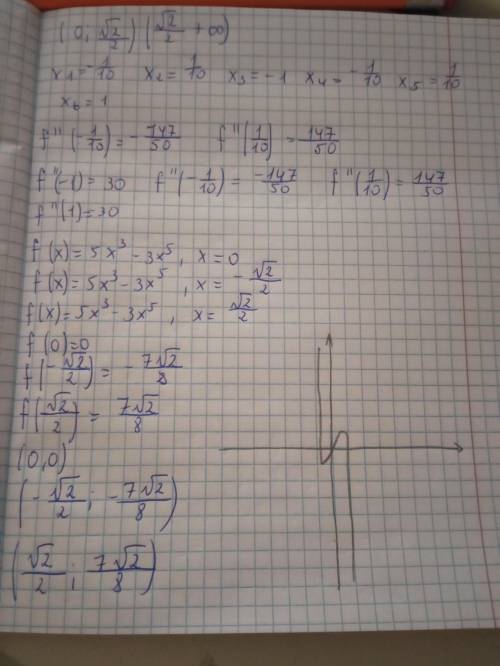 (0; √2/2) (√2/2 +∞)
x1=-1/10 x2=1/10 x3=-1 x4=-1/10 x5=1/10
x6=1
f''(-1/10)=-147/50 f''(1/10)=147/50
f''(-1)=30 f''(-1/10)=-147/50 f''(1/10)=147/50
f''(1)=30
f(x)=5x³-3x⁵, x=0
f(x)=5x³-3x⁵, x=-√2/2
f(x)=5x³-3x⁵, x=√2/2
f(0)=0
f(-√2/2)=-7√2/8
f(√2/2)=7√2/8
(0,0)
(-√2/2; -7√2/8)
(√2/2; 7√2/8)